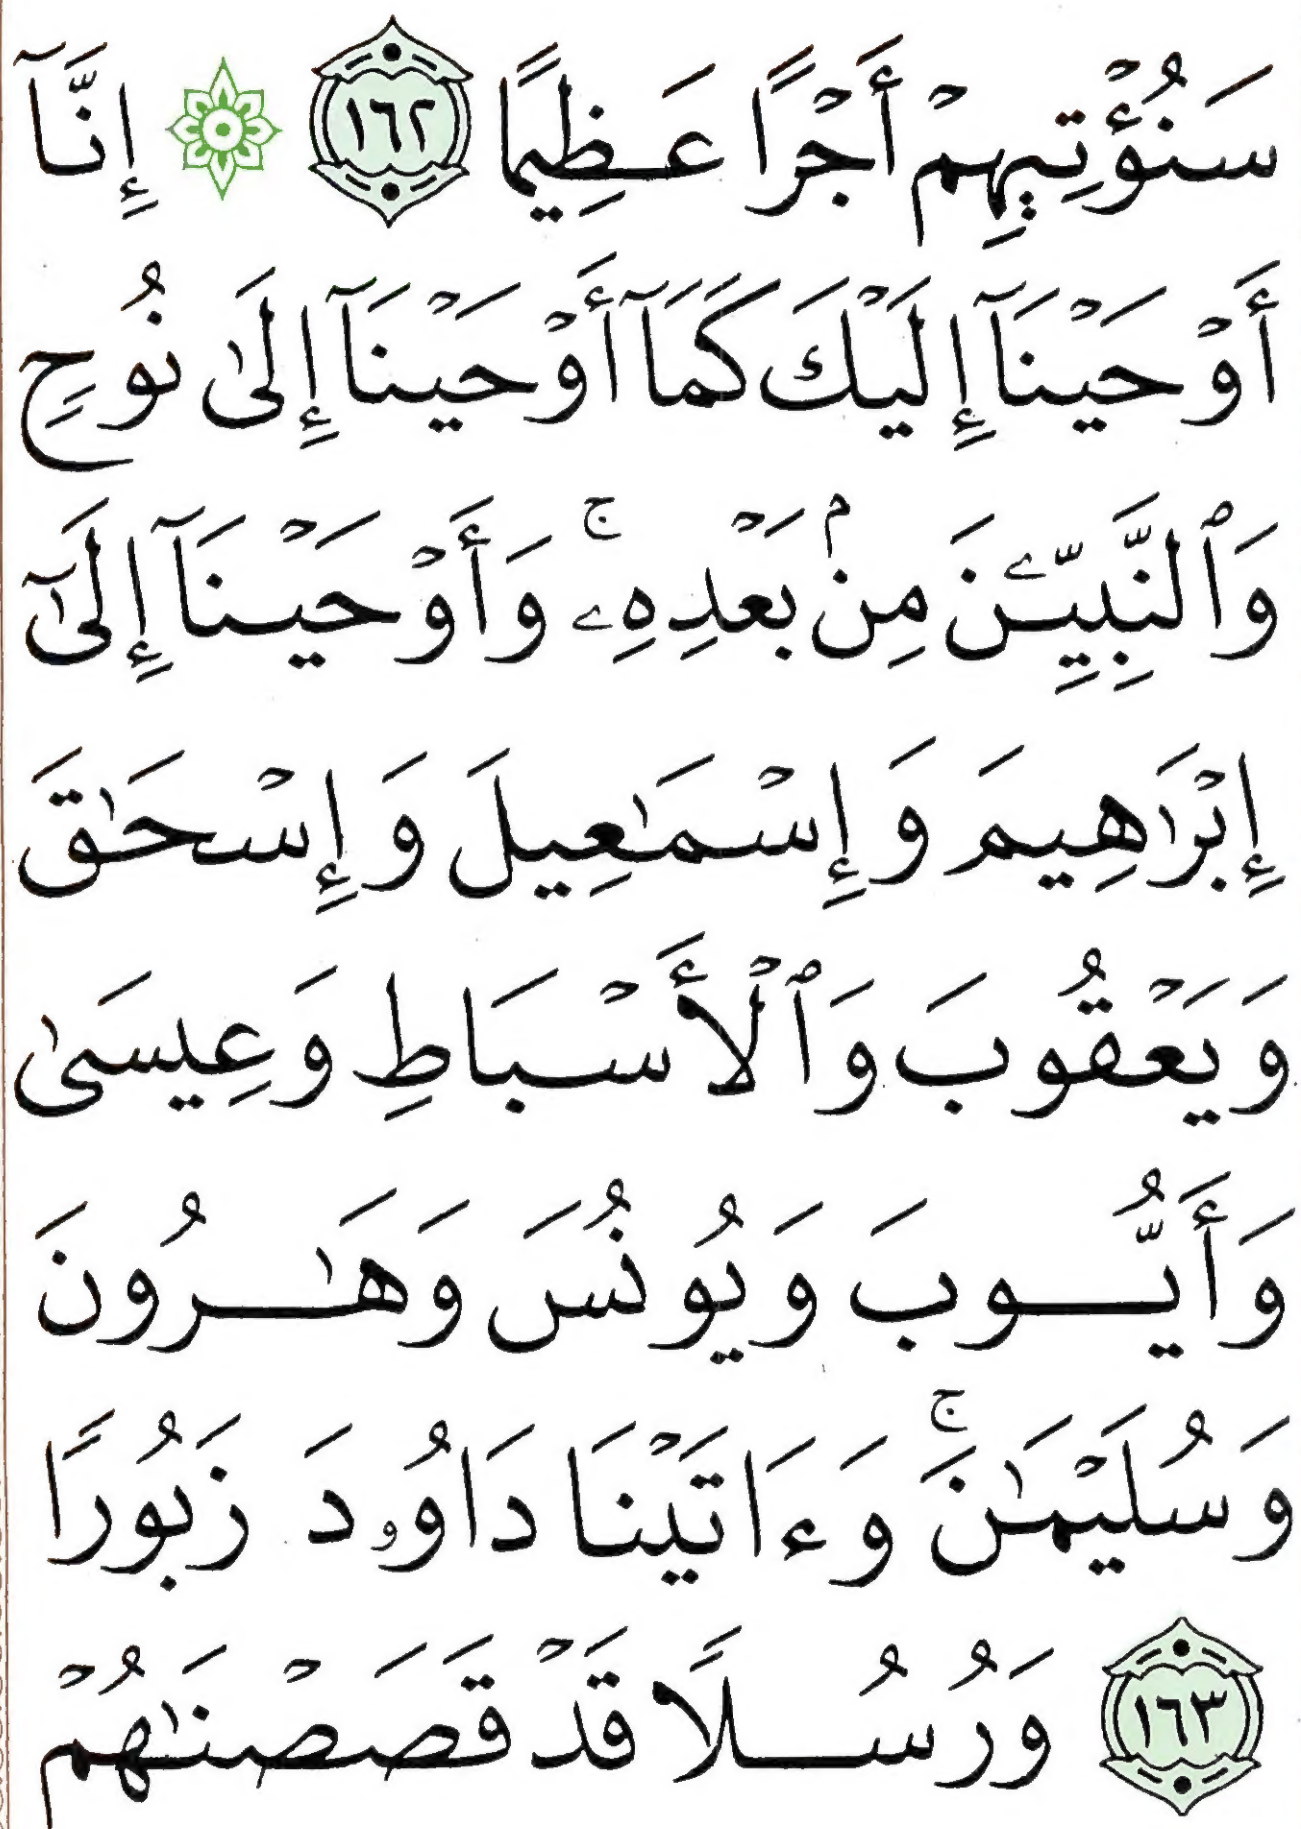 سَنُؤۡتِيهِمۡ أَجۡرًا عَظِيمًا ١٦٢ ۞ إِنَّآ
أَوۡحَيۡنَآ إِلَيۡكَ كَمَآ أَوۡحَيۡنَآ إِلَىٰ نُوحٖ
وَٱلنَّبِيِّـۧنَ مِنۢ بَعۡدِهِۦۚ وَأَوۡحَيۡنَآ إِلَىٰٓ
إِبۡرَٰهِيمَ وَإِسۡمَٰعِيلَ وَإِسۡحَٰقَ
وَيَعۡقُوبَ وَٱلۡأَسۡبَاطِ وَعِيسَىٰ
وَأَيُّوبَ وَيُونُسَ وَهَٰرُونَ
وَسُلَيۡمَٰنَۚ وَءَاتَيۡنَا دَاوُۥدَ زَبُورًا
١٦٣ وَرُسُلًا قَدۡ قَصَصۡنَٰهُمۡ